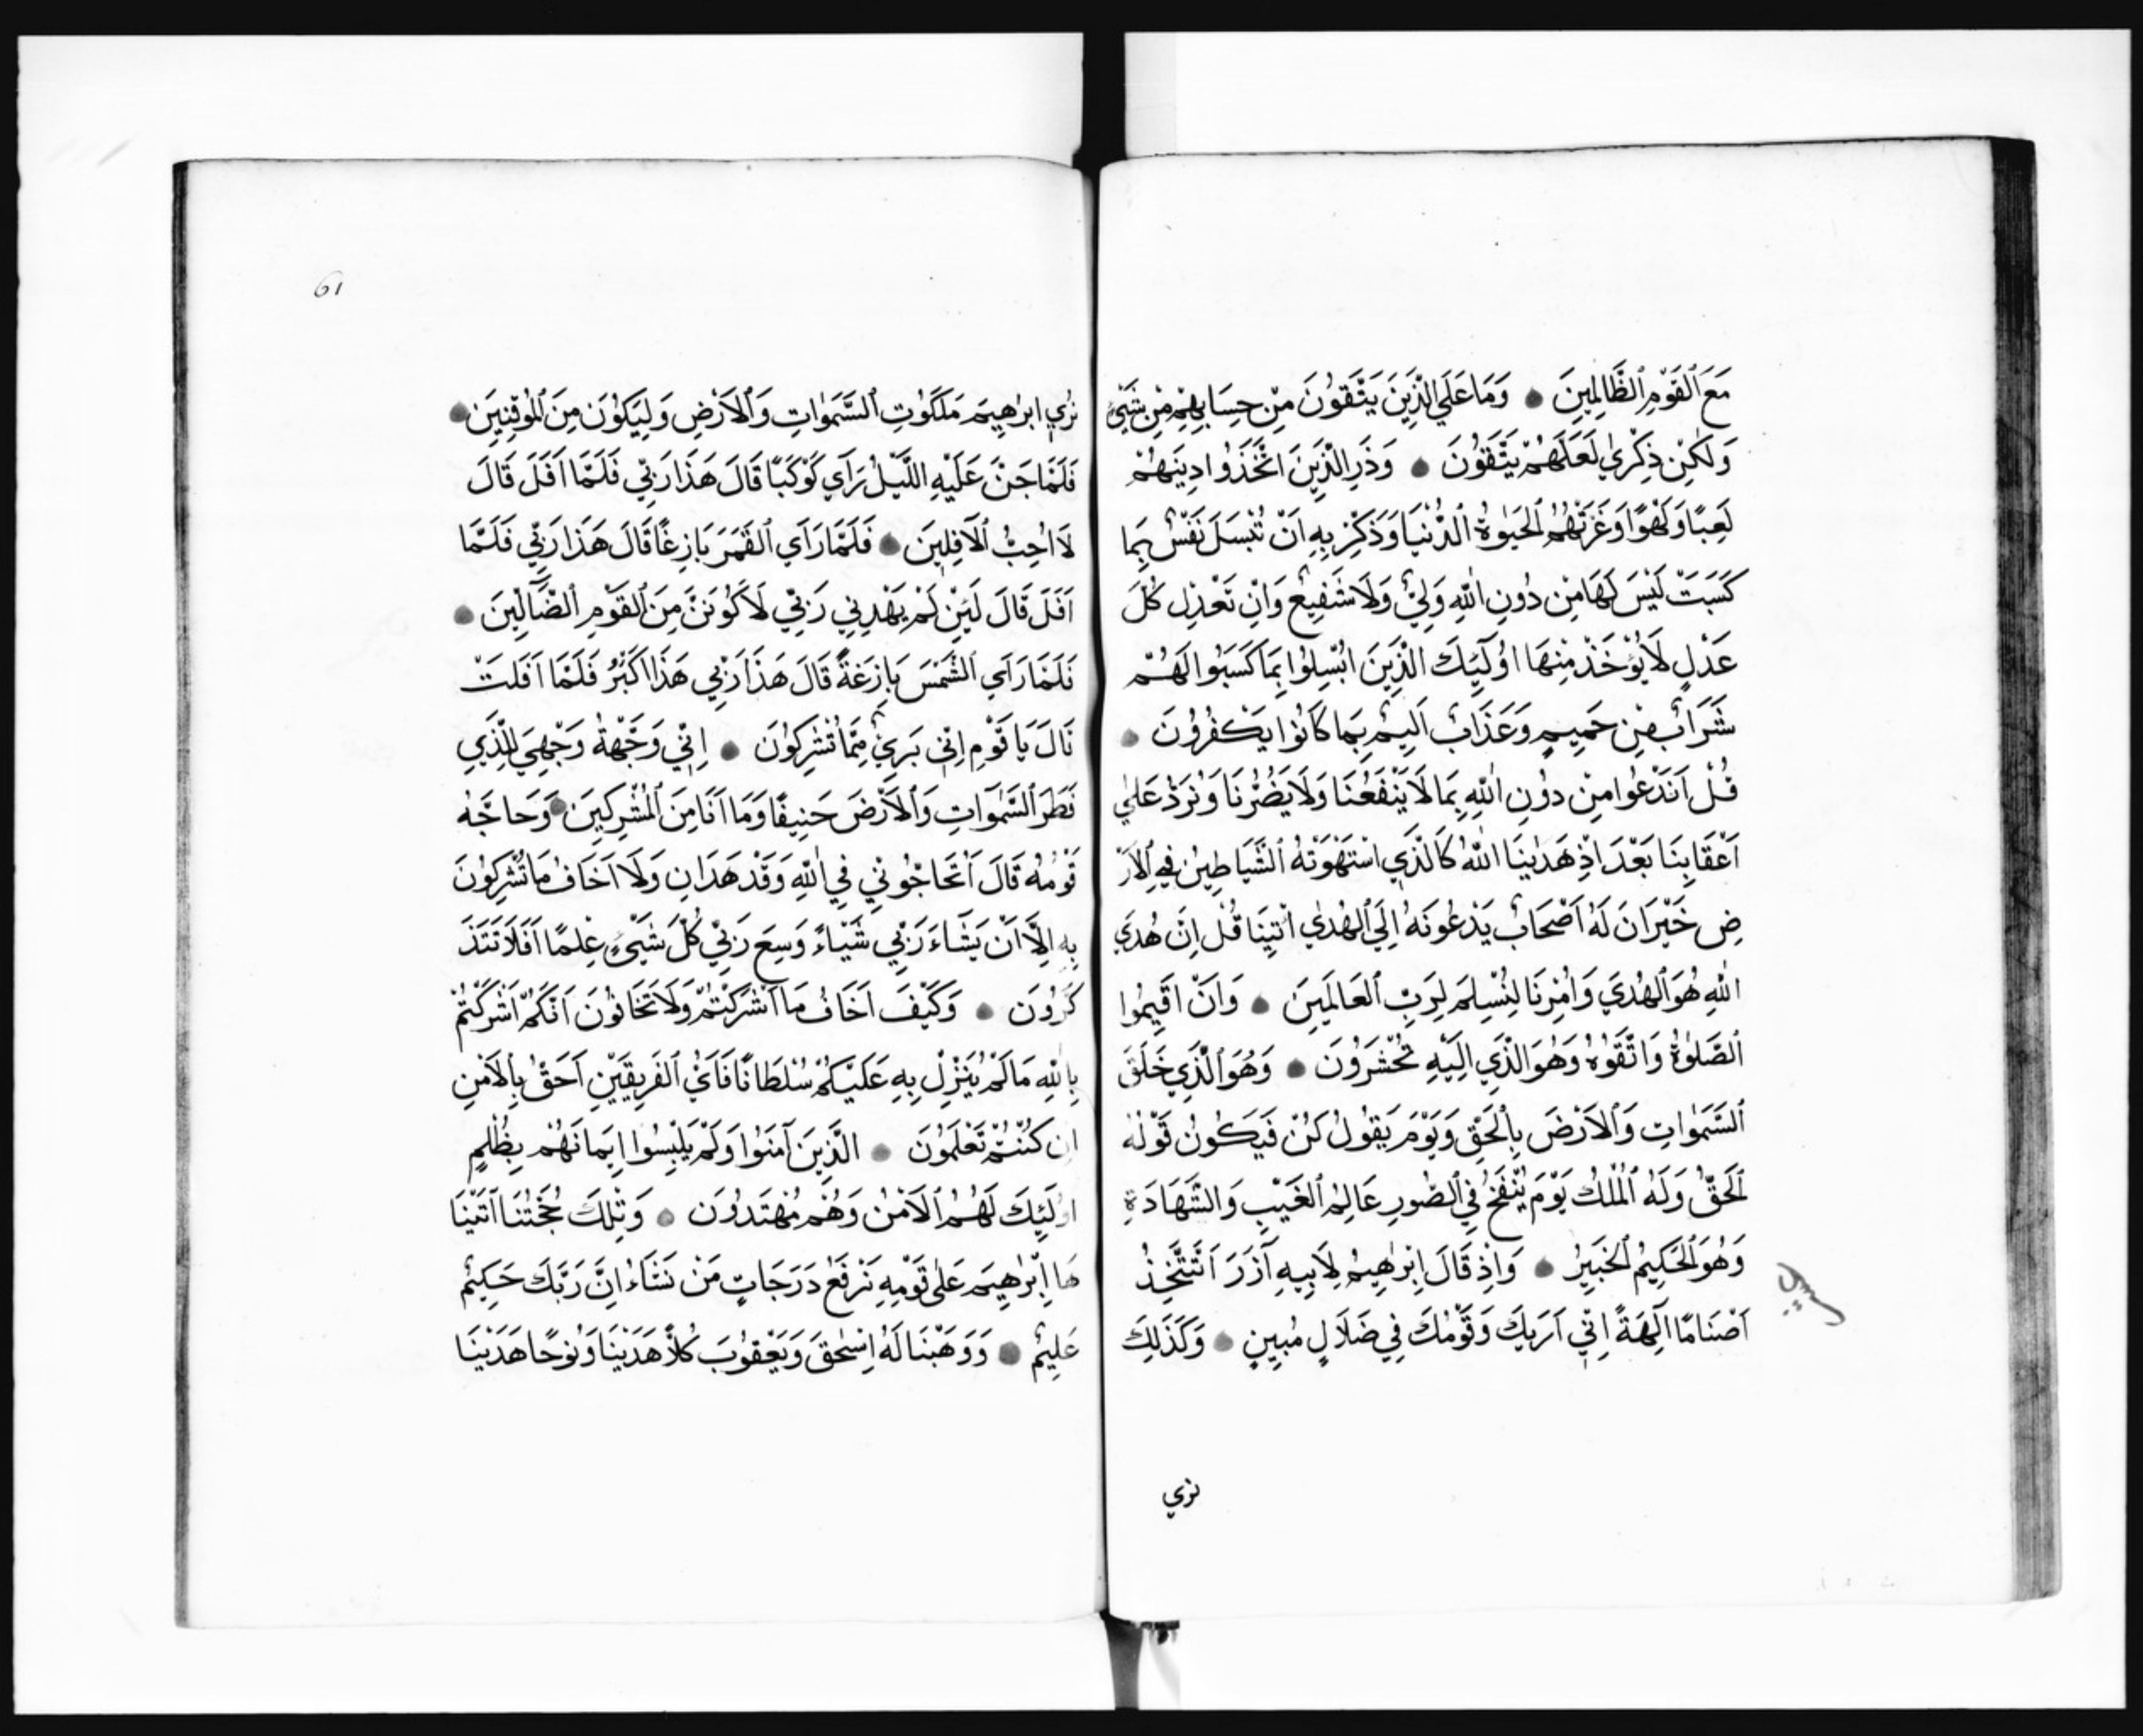 مَعَ ٱلْقَوْمِ ٱلظَّالِمِينَ ● وَمَا عَلَي الَّذِينَ يَتَّقُونَ مِنْ حِسَابِهِمْ مِنْ شَيْءٍ
وَلٰكِنْ ذِكْرٰي لَعَلَّهُمْ يَتَّقُونَ ● وَذَرِ الَّذِينَ اتَّخَذُوا دِينَهُمْ
لَعِبًا وَلَهْوًا وَغَرَّتْهُمُ ٱلْحَيٰوةُ ٱلدُّنْيَا وَذَكِّرْ بِهِ اَنْ تُبْسَلَ نَفْسٌ بِمَا
كَسَبَتْ لَيْسَ لَهَا مِنْ دُونِ اللّٰهِ وَلِيٌّ وَلَا شَفِيعٌ وَاِنْ تَعْدِلْ كُلَّ
عَدْلٍ لَا يُؤْخَذْ مِنْهَا اُولَئِكَ الَّذِينَ ابْسِلُوا بِمَا كَسَبُوا لَهُمْ
شَرَابٌ مِنْ حَمِيمٍ وَعَذَابٌ اَلِيمٌ بِمَا كَانُوا يَكْفُرُونَ ●
قُلْ اَنَدْعُوا مِنْ دُونِ اللّٰهِ بِمَا لَا يَنْفَعُنَا وَلَا يَضُرُّنَا وَنُرَدُّ عَلٰي
اَعْقَابِنَا بَعْدَ اِذْ هَدٰينَا اللّٰهُ كَالَّذِي اسْتَهْوَتْهُ ٱلشَّيَاطِينُ فِي ٱلْاَرْ
ضِ حَيْرَانَ لَهُ اَصْحَابٌ يَدْعُونَهُ اِلَي ٱلْهُدٰي ائْتِنَا قُلْ اِنَّ هُدَي
اللّٰهِ هُوَ ٱلْهُدَي وَاُمِرْنَا لِنُسْلِمَ لِرَبِّ ٱلْعَالَمِينَ ● وَاَنْ اَقِيمُوا
ٱلصَّلٰوةَ وَاتَّقُوهُ وَهُوَ الَّذِي اِلَيْهِ تُحْشَرُونَ ● وَهُوَ الَّذِي خَلَقَ
ٱلسَّمٰوَاتِ وَٱلْاَرْضَ بِٱلْحَقِّ وَيَوْمَ يَقُولُ كُنْ فَيَكُونُ قَوْلُهُ
ٱلْحَقُّ وَلَهُ ٱلْمُلْكُ يَوْمَ يُنْفَخُ فِي ٱلصُّورِ عَالِمُ ٱلْغَيْبِ وَالشَّهَادَةِ
وَهُوَ ٱلْحَكِيمُ ٱلْخَبِيرُ ● وَاِذْ قَالَ اِبْرٰهِيمُ لِاَبِيهِ آزَرَ اَتَتَّخِذُ
اَصْنَامًا آلِهَةً اِنِّي اَرَيكَ وَقَوْمَكَ فِي ضَلَالٍ مُبِينٍ ● وَكَذَلِكَ
نري
61
نُرِي ابرٰهِيمَ مَلَكُوتِ ٱلسَّمٰوَاتِ وَٱلْاَرْضِ وَلِيَكُونَ مِنَ ٱلْمُوقِنِينَ ●
فَلَمَّا جَنَّ عَلَيْهِ اللَّيْلُ رَآي كَوْكَبًا قَالَ هَذَا رَبِّي فَلَمَّا اَفَلَ قَالَ
لَا اُحِبُّ ٱلْآفِلِينَ ● فَلَمَّا رَآي ٱلْقَمَرَ بَازِغًا قَالَ هَذَا رَبِّي فَلَمَّا
اَفَلَ قَالَ لَئِنْ لَمْ يَهْدِنِي رَبِّي لَاَكُونَنَّ مِنَ ٱلْقَوْمِ ٱلضَّآلِّينَ ●
فَلَمَّا رَآي ٱلشَّمْسَ بَازِغَةً قَالَ هَذَا رَبِّي هَذَا اَكْبَرُ فَلَمَّا اَفَلَتْ
قَالَ يَا قَوْمِ اِنِّي بَرِيٌ مِمَّا تُشْرِكُونَ ● اِنِّي وَجَّهْتُ وَجْهِيَ لِلَّذِي
فَطَرَ السَّمٰوَاتِ وَٱلْاَرْضَ حَنِيفًا وَمَا اَنَا مِنَ ٱلْمُشْرِكِينَ ● وَحَاجَّهُ
قَوْمُهُ قَالَ اَتُحَاجُّونِّي فِي اللّٰهِ وَقَدْ هَدَانِ وَلَا اَخَافُ مَا تُشْرِكُونَ
بِهِ اِلَّا اَنْ يَشَاءَ رَبِّي شَيْاءً وَسِعَ رَبِّي كُلَّ شَيْءٍ عِلْمًا اَفَلَا تَتَذَ
كَّرُونَ ● وَكَيْفَ اَخَافُ مَا اَشْرَكْتُمْ وَلَا تَخَافُونَ اَنَّكُمْ اَشْرَكْتُمْ
بِاللّٰهِ مَا لَمْ يُنَزِّلْ بِهِ عَلَيْكُمْ سُلْطَانًا فَاَيُّ ٱلْفَرِيقَيْنِ اَحَقُّ بِٱلْاَمْنِ
اِن كُنْتُمْ تَعْلَمُونَ ● الَّذِينَ آمَنُوا وَلَمْ يَلْبِسُوا اِيمَانَهُمْ بِظُلْمٍ
اُولَئِكَ لَهُمُ ٱلْاَمْنُ وَهُمْ مُهْتَدُونَ ● وَتِلْكَ حُجَّتُنَا آتَيْنَا
هَا اِبْرٰهِيمَ عَلٰي قَوْمِهِ نَرْفَعُ دَرَجَاتٍ مَنْ نَشَاءُ اِنَّ رَبَّكَ حَكِيمٌ
عَلِيمٌ ● وَوَهَبْنَا لَهُ اِسْحٰقَ وَيَعْقُوبَ كُلًّا هَدَيْنَا وَنُوحًا هَدَيْنَا